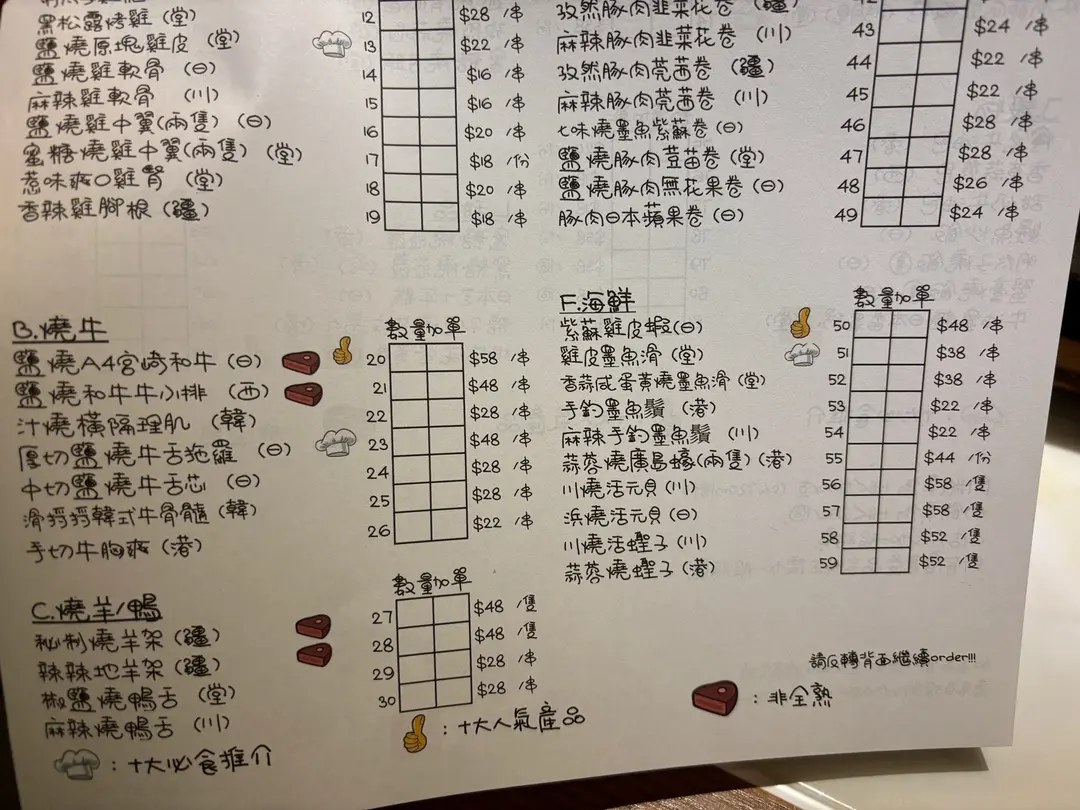 黑松露烤雞（堂） 12 $28 /串
鹽燒原塊雞皮（堂） 13 $22 /串
鹽燒雞軟骨（日） 14 $16 /串
麻辣雞軟骨（川） 15 $16 /串
鹽燒雞中翼(兩隻)（日） 16 $20 /串
蜜糖燒雞中翼(兩隻)（堂） 17 $18 /份
惹味爽口雞腎（堂） 18 $20 /串
香辣雞腳根（疆） 19 $18 /串
B.燒牛 數量 加單
鹽燒A4宮崎和牛（日） 20 $58 /串
鹽燒和牛牛小排（西） 21 $48 /串
汁燒橫隔理肌（韓） 22 $28 /串
厚切鹽燒牛舌拖羅（日） 23 $48 /串
中切鹽燒牛舌芯（日） 24 $28 /串
滑捋捋韓式牛骨髓（韓） 25 $28 /串
手切牛胸爽（港） 26 $22 /串
C.燒羊/鴨 數量 加單
秘制燒羊架（疆） 27 $48 /隻
辣辣地羊架（疆） 28 $48 /隻
椒鹽燒鴨舌（堂） 29 $28 /串
麻辣燒鴨舌（川） 30 $28 /串
：十大必食推介
：十大人氣產品
孜然豚肉韭菜花卷（疆） 42
麻辣豚肉韭菜花卷（川） 43 $24 /串
孜然豚肉芫茜卷（疆） 44 $22 /串
麻辣豚肉芫茜卷（川） 45 $22 /串
七味燒墨魚紫蘇卷（日） 46 $28 /串
鹽燒豚肉荳苗卷（堂） 47 $28 /串
鹽燒豚肉無花果卷（日） 48 $26 /串
豚肉日本蘋果卷（日） 49 $24 /串
F.海鮮 數量 加單
紫蘇雞皮蝦（日） 50 $48 /串
雞皮墨魚滑（堂） 51 $38 /串
香蒜咸蛋黃燒墨魚滑（堂） 52 $38 /串
手釣墨魚鬚（港） 53 $22 /串
麻辣手釣墨魚鬚（川） 54 $22 /串
蒜蓉燒廣島蠔(兩隻)（港） 55 $44 /份
川燒活元貝（川） 56 $58 /隻
浜燒活元貝（日） 57 $58 /隻
川燒活蟶子（川） 58 $52 /隻
蒜蓉燒蟶子（港） 59 $52 /隻
請反轉背面繼續order!!!
：非全熟